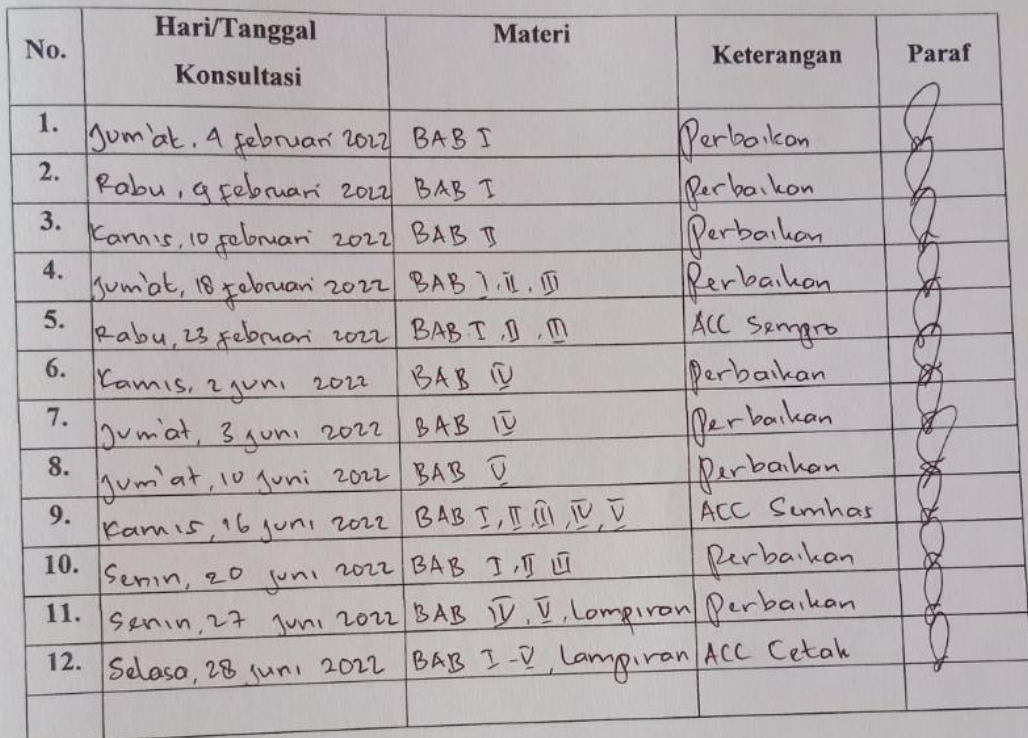 No. Hari/Tanggal Konsultasi Materi Keterangan Paraf
1. Jum'at, 4 februari 2022 BAB I Perbaikan
2. Rabu, 9 februari 2022 BAB I Perbaikan
3. Kamis, 10 februari 2022 BAB II Perbaikan
4. Jum'at, 18 februari 2022 BAB I, II, III Perbaikan
5. Rabu, 23 februari 2022 BAB I, II, III ACC Sempro
6. Kamis, 2 juni 2022 BAB IV Perbaikan
7. Jum'at, 3 juni 2022 BAB IV Perbaikan
8. Jum'at, 10 juni 2022 BAB V Perbaikan
9. Kamis, 16 juni 2022 BAB I, II, III, IV, V ACC Semhas
10. Senin, 20 juni 2022 BAB I, II III Perbaikan
11. Senin, 27 juni 2022 BAB IV, V, Lampiran Perbaikan
12. Selasa, 28 juni 2022 BAB I-V, Lampiran ACC Cetak